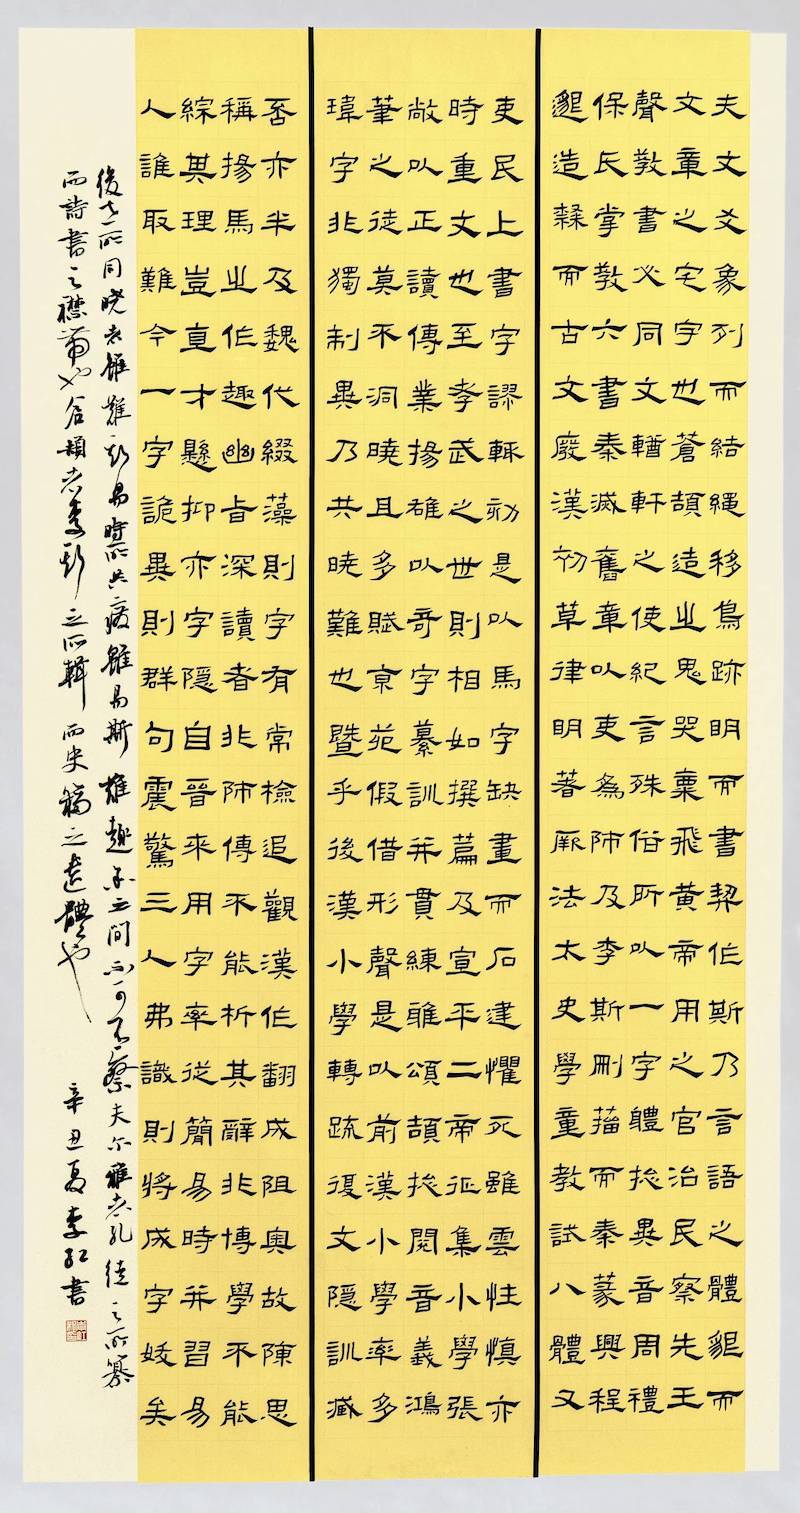 夫文爻象列而結繩移鳥跡明而書契作斯乃言語之體貌而
文章之宅字也蒼頡造之鬼哭粟飛黃帝用之官治民察先王
聲教書必同文輶軒之使紀言殊俗所以一字體捴異音周禮
保氏掌教六書秦滅舊章以吏為師及李斯刪籀而秦篆興程
邈造隸而古文廢漢初草律明著厥法太史學童教試八體又
吏民上書字謬輒劾是以馬字缺畫而石建懼死雖雲性慎亦
時重文也至孝武之世則相如撰篇及宣平二帝征集小學張
敞以正讀傳業揚雄以奇字纂訓并貫練雅頌頡捴閱音義鴻
筆之徒莫不洞曉且多賦京苑假借形聲是以前漢小學率多
瑋字非獨制異乃共曉難也暨乎後漢小學轉疏復文隱訓臧
否亦半及魏代綴藻則字有常檢追觀漢作翻成阻奧故陳思
稱揚馬之作趣幽旨深讀者非師傳不能析其辭非博學不能
綜其理豈直才懸抑亦字隱自晉來用字率從簡易時并習易
人誰取難今一字詭異則群句震驚三人弗識則將成字妖矣
後世所同曉者雖難斯易時所共廢雖易斯難趣舍之間不可不察夫爾雅者孔徒之所纂
而詩書之襟帶也倉頡者李斯之所輯而史籀之遺體也
辛丑夏李紅書